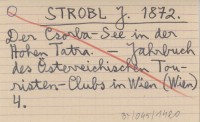 STROBL J. 1872.
Der Csorba-See in der
Hohen Tatra. — Jahrbuch
des Österreichischen Tou-
risten-Clubs in Wien (Wien)
4.